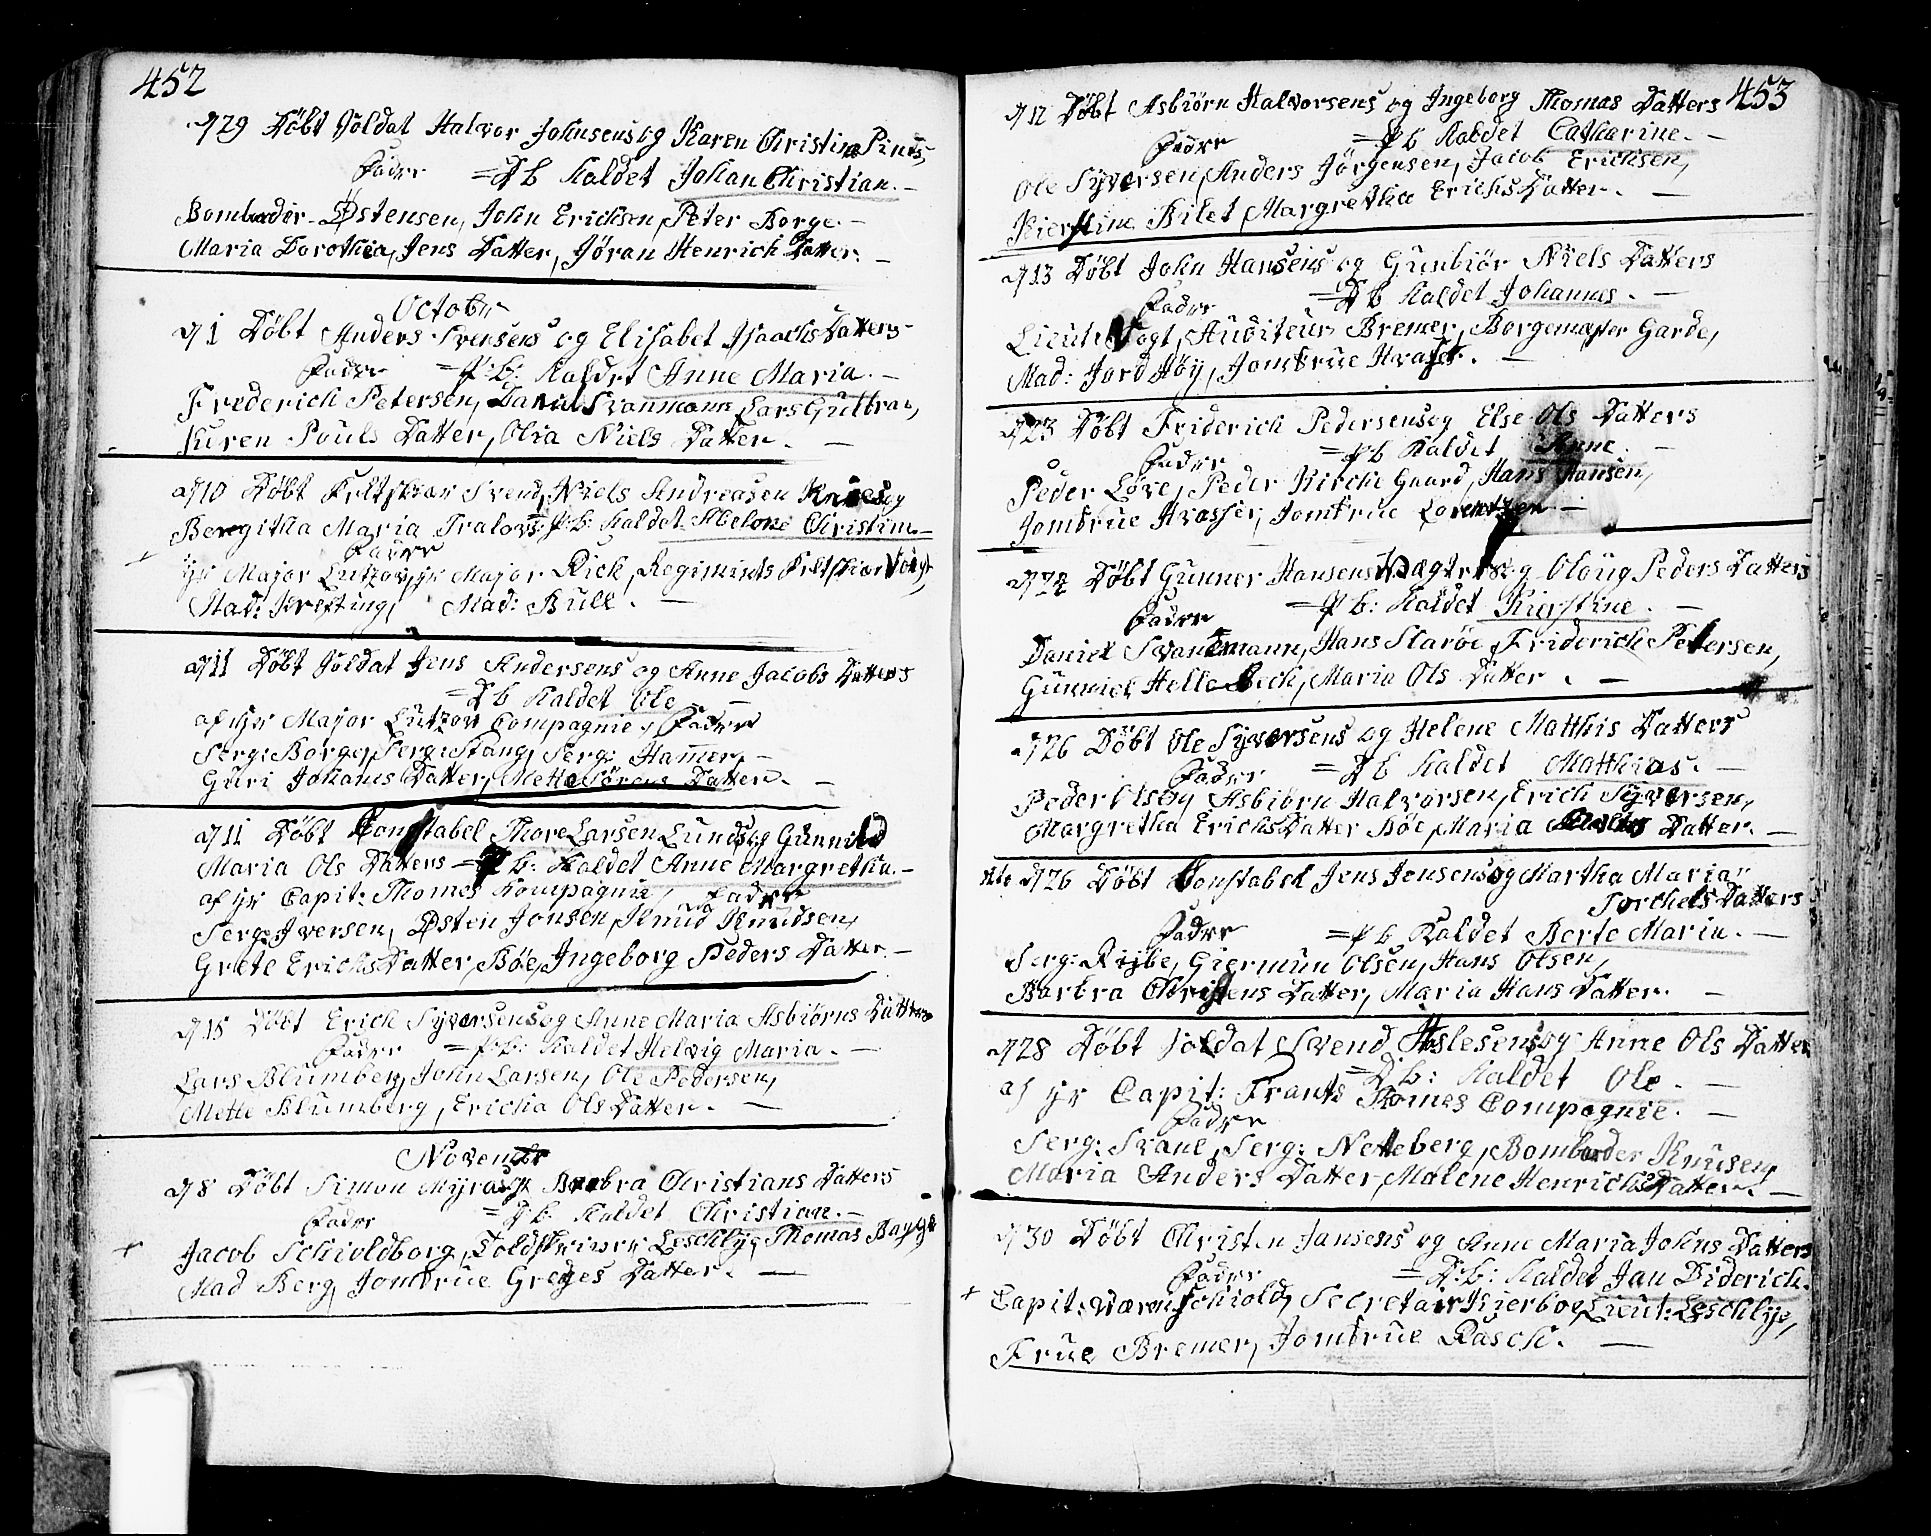 452
d 29 Døbt Soldat Halvor Johnsens og Karen Christina
Fadre = D b kaldet Johan Christian. –
Østensen, John Erichsen, Peter Borge –
Maria Dorothea, Jens Datter, Jøran Henrich Datter. –
October
d 1 Døbt Anders Svensens og Elisabet Isaachs Datters –
Fadre = P: b: kaldet Anne Maria. –
Frederich Petersen, Daniel Svanmann, Lars
Karen Pouls Datter, Olia Niels Datter. –
d 10 Døbt Feltskiær Svend Niels Andreasen og
Beregitha Maria P: b: kaldet Abelone Christine –
Fadre
Hr Major Lutzov, Hr Major Rick, Regiments Feltskiær Voigt,
Mad: Krefting, Mad: Bull. –
d 11 Døbt Soldat Jens Andersens og Anne Jacobs Datters
= D b kaldet Ole –
af Hr Major Lutzov Compagnie, Fadre
Serg: Borge, Serg: Stang, Serg: Hamer, –
Guri Johanis Datter, Mette Sørens Datter. –
d 11 Døbt Constabel Thore Larsen Lunds og Gunnild
Maria Ols Datters = P b: kaldet Anne Margretha. –
af Hr Capit: Thomes Compagnie, Fadre
Serg: Iversen, Østen Jonsen, Knud Knudsen,
Grete Erichs Datter Bøe, Ingeborg Peders Datter –
d 15 Døbt Erich Syversens og Anne Maria Asbiørns Datters
Fadre = P: b: kaldet Helvig Maria. –
Lars Blumberg, John Larsen, Ole Pedersen,
Mette Blumberg, Ericha Ols Datter. –
November
d 8 Døbt Simon Myras og Barbra Christians Datters
Fadre = D b: kaldet Christian. –
+ Jacob Schioldborg, Leschly, Thomas
Mad Berg, Jomfrue Greges Datter. –
453
d 12 Døbt Asbiørn Halvorsens og Ingeborg Thomas Datters
Fadre = P b kaldet Catharine. –
Ole Syversen, Anders Jørgensen, Jacob Erichsen,
Kierstine Bilet, Margretha Erichs Datter. –
d 13 Døbt John Hansens og Gunbiør Niels Datters
Fadre = D b kaldet Johannes. –
Lieut: Vogt, Auditeur Bremer, Borgemester Garde,
Mad: Jord Høy, Jomfrue –
d 23 Døbt Friderich Pedersens og Else Ols Datters
Fadre = P b kaldet Anne. –
Peder Løve, Peder Kirche Gaard, Hans Hansen,
Jomfrue Jomfrue Lorentzen. –
d 24 Døbt Gunner Hansens og Oloug Peders Datters
Fadre = P b: kaldet Kierstine. –
Daniel Svanemann, Hans Starøe, Friderich Petersen,
Gunnild Helle Beck, Maria Ols Datter. –
d 26 Døbt Ole Syversens og Helene Matthis Datters
Fadre = D b kaldet Matthias. –
Peder Olsen, Asbiørn Halvorsen, Erich Syversen,
Margretha Erichs Datter Bøe, Maria Datter. –
d 26 Døbt Constabel Jens Jensens og Martha Maria
Torchels Datters
Fadre = P b kaldet Berte Maria. –
Serg: Riibe, Giermun Olsen, Hans Olsen,
Barbra Christens Datter, Maria Hans Datter. –
d 28 Døbt Soldat Svend Aslesens og Anne Ols Datter
= D b: kaldet Ole. –
af Hr Capit: Frants Thomes Compagnie. –
Fadre
Serg: Svane, Serg: Netteberg, Bombarder Knusen,
Maria Anders Datter, Malene Henrichs Datter. –
d 30 Døbt Christen Jansens og Anne Maria Johns Datters
Fadre = D: b: kaldet Jan Diderich.
+ Capit: Værenschiold, Secretair Kierboe, Lieut: Leschly,
Frue Bremer, Jomfrue Rasch. –